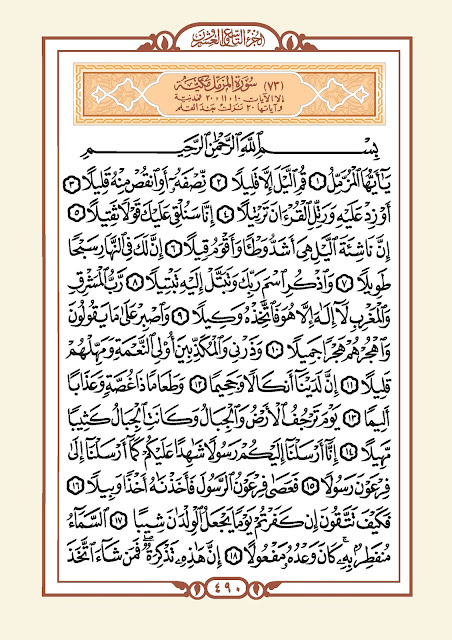 الجزء التاسع والعشرون
(٧٣) سورة المزمل مكية
إلا الآيات ١٠ و١١ و٢٠ فمدنية
وآياتها ٢٠ نزلت بعد القلم
بِسْمِ ٱللَّهِ ٱلرَّحْمَٰنِ ٱلرَّحِيمِ
يَٰٓأَيُّهَا ٱلْمُزَّمِّلُ ١ قُمِ ٱلَّيْلَ إِلَّا قَلِيلًا ٢ نِّصْفَهُۥٓ أَوِ ٱنقُصْ مِنْهُ قَلِيلًا ٣
أَوْ زِدْ عَلَيْهِ وَرَتِّلِ ٱلْقُرْءَانَ تَرْتِيلًا ٤ إِنَّا سَنُلْقِى عَلَيْكَ قَوْلًا ثَقِيلًا ٥
إِنَّ نَاشِئَةَ ٱلَّيْلِ هِىَ أَشَدُّ وَطْـًٔا وَأَقْوَمُ قِيلًا ٦ إِنَّ لَكَ فِى ٱلنَّهَارِ سَبْحًا
طَوِيلًا ٧ وَٱذْكُرِ ٱسْمَ رَبِّكَ وَتَبَتَّلْ إِلَيْهِ تَبْتِيلًا ٨ رَّبُّ ٱلْمَشْرِقِ
وَٱلْمَغْرِبِ لَآ إِلَٰهَ إِلَّا هُوَ فَٱتَّخِذْهُ وَكِيلًا ٩ وَٱصْبِرْ عَلَىٰ مَا يَقُولُونَ
وَٱهْجُرْهُمْ هَجْرًا جَمِيلًا ١٠ وَذَرْنِى وَٱلْمُكَذِّبِينَ أُو۟لِى ٱلنَّعْمَةِ وَمَهِّلْهُمْ
قَلِيلًا ١١ إِنَّ لَدَيْنَآ أَنكَالًا وَجَحِيمًا ١٢ وَطَعَامًا ذَا غُصَّةٍ وَعَذَابًا
أَلِيمًا ١٣ يَوْمَ تَرْجُفُ ٱلْأَرْضُ وَٱلْجِبَالُ وَكَانَتِ ٱلْجِبَالُ كَثِيبًا
مَّهِيلًا ١٤ إِنَّآ أَرْسَلْنَآ إِلَيْكُمْ رَسُولًا شَٰهِدًا عَلَيْكُمْ كَمَآ أَرْسَلْنَآ إِلَىٰ
فِرْعَوْنَ رَسُولًا ١٥ فَعَصَىٰ فِرْعَوْنُ ٱلرَّسُولَ فَأَخَذْنَٰهُ أَخْذًا وَبِيلًا ١٦
فَكَيْفَ تَتَّقُونَ إِن كَفَرْتُمْ يَوْمًا يَجْعَلُ ٱلْوِلْدَٰنَ شِيبًا ١٧ ٱلسَّمَآءُ
مُنفَطِرٌۢ بِهِۦۚ كَانَ وَعْدُهُۥ مَفْعُولًا ١٨ إِنَّ هَٰذِهِۦ تَذْكِرَةٌۖ فَمَن شَآءَ ٱتَّخَذَ
٤٩٠